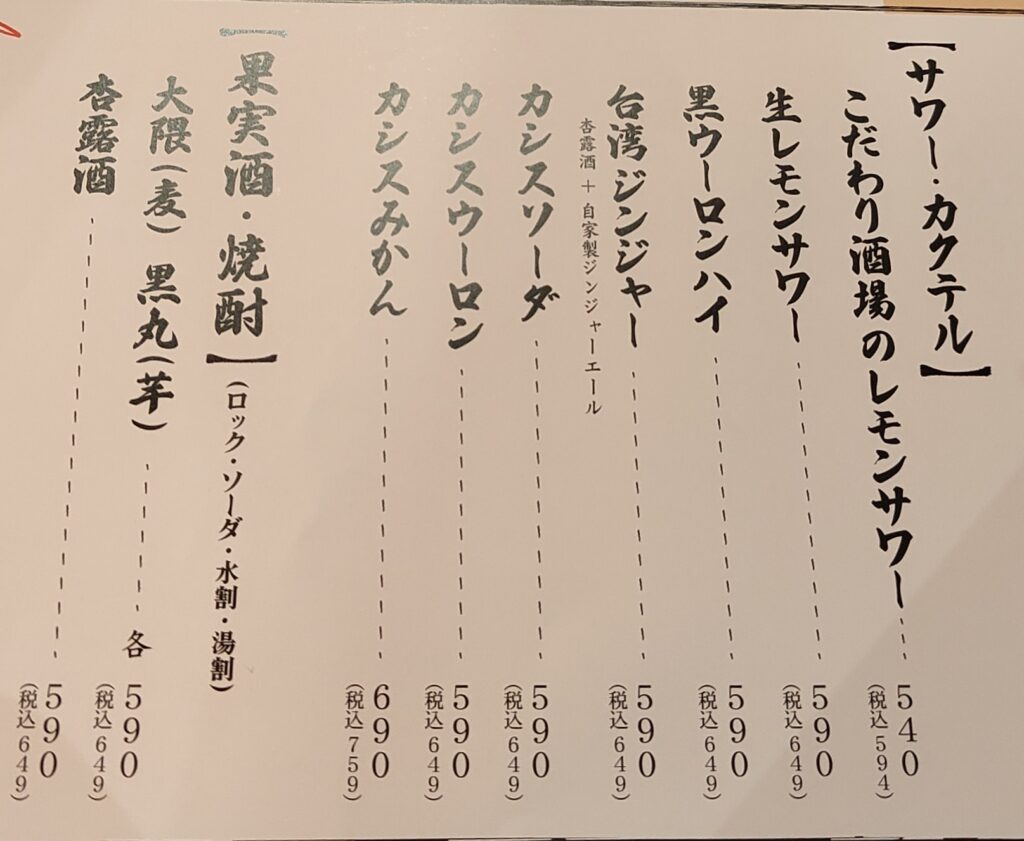 【サワー・カクテル】
こだわり酒場のレモンサワー 540
(税込594)
生レモンサワー 590
(税込649)
黒ウーロンハイ 590
(税込649)
台湾ジンジャー 590
(税込649)
杏露酒＋自家製ジンジャーエール
カシスソーダ 590
(税込649)
カシスウーロン 590
(税込649)
カシスみかん 690
(税込759)
【果実酒・焼酎】(ロック・ソーダ・水割・湯割)
大隈(麦) 黒丸(芋) 各590
(税込649)
杏露酒 590
(税込649)